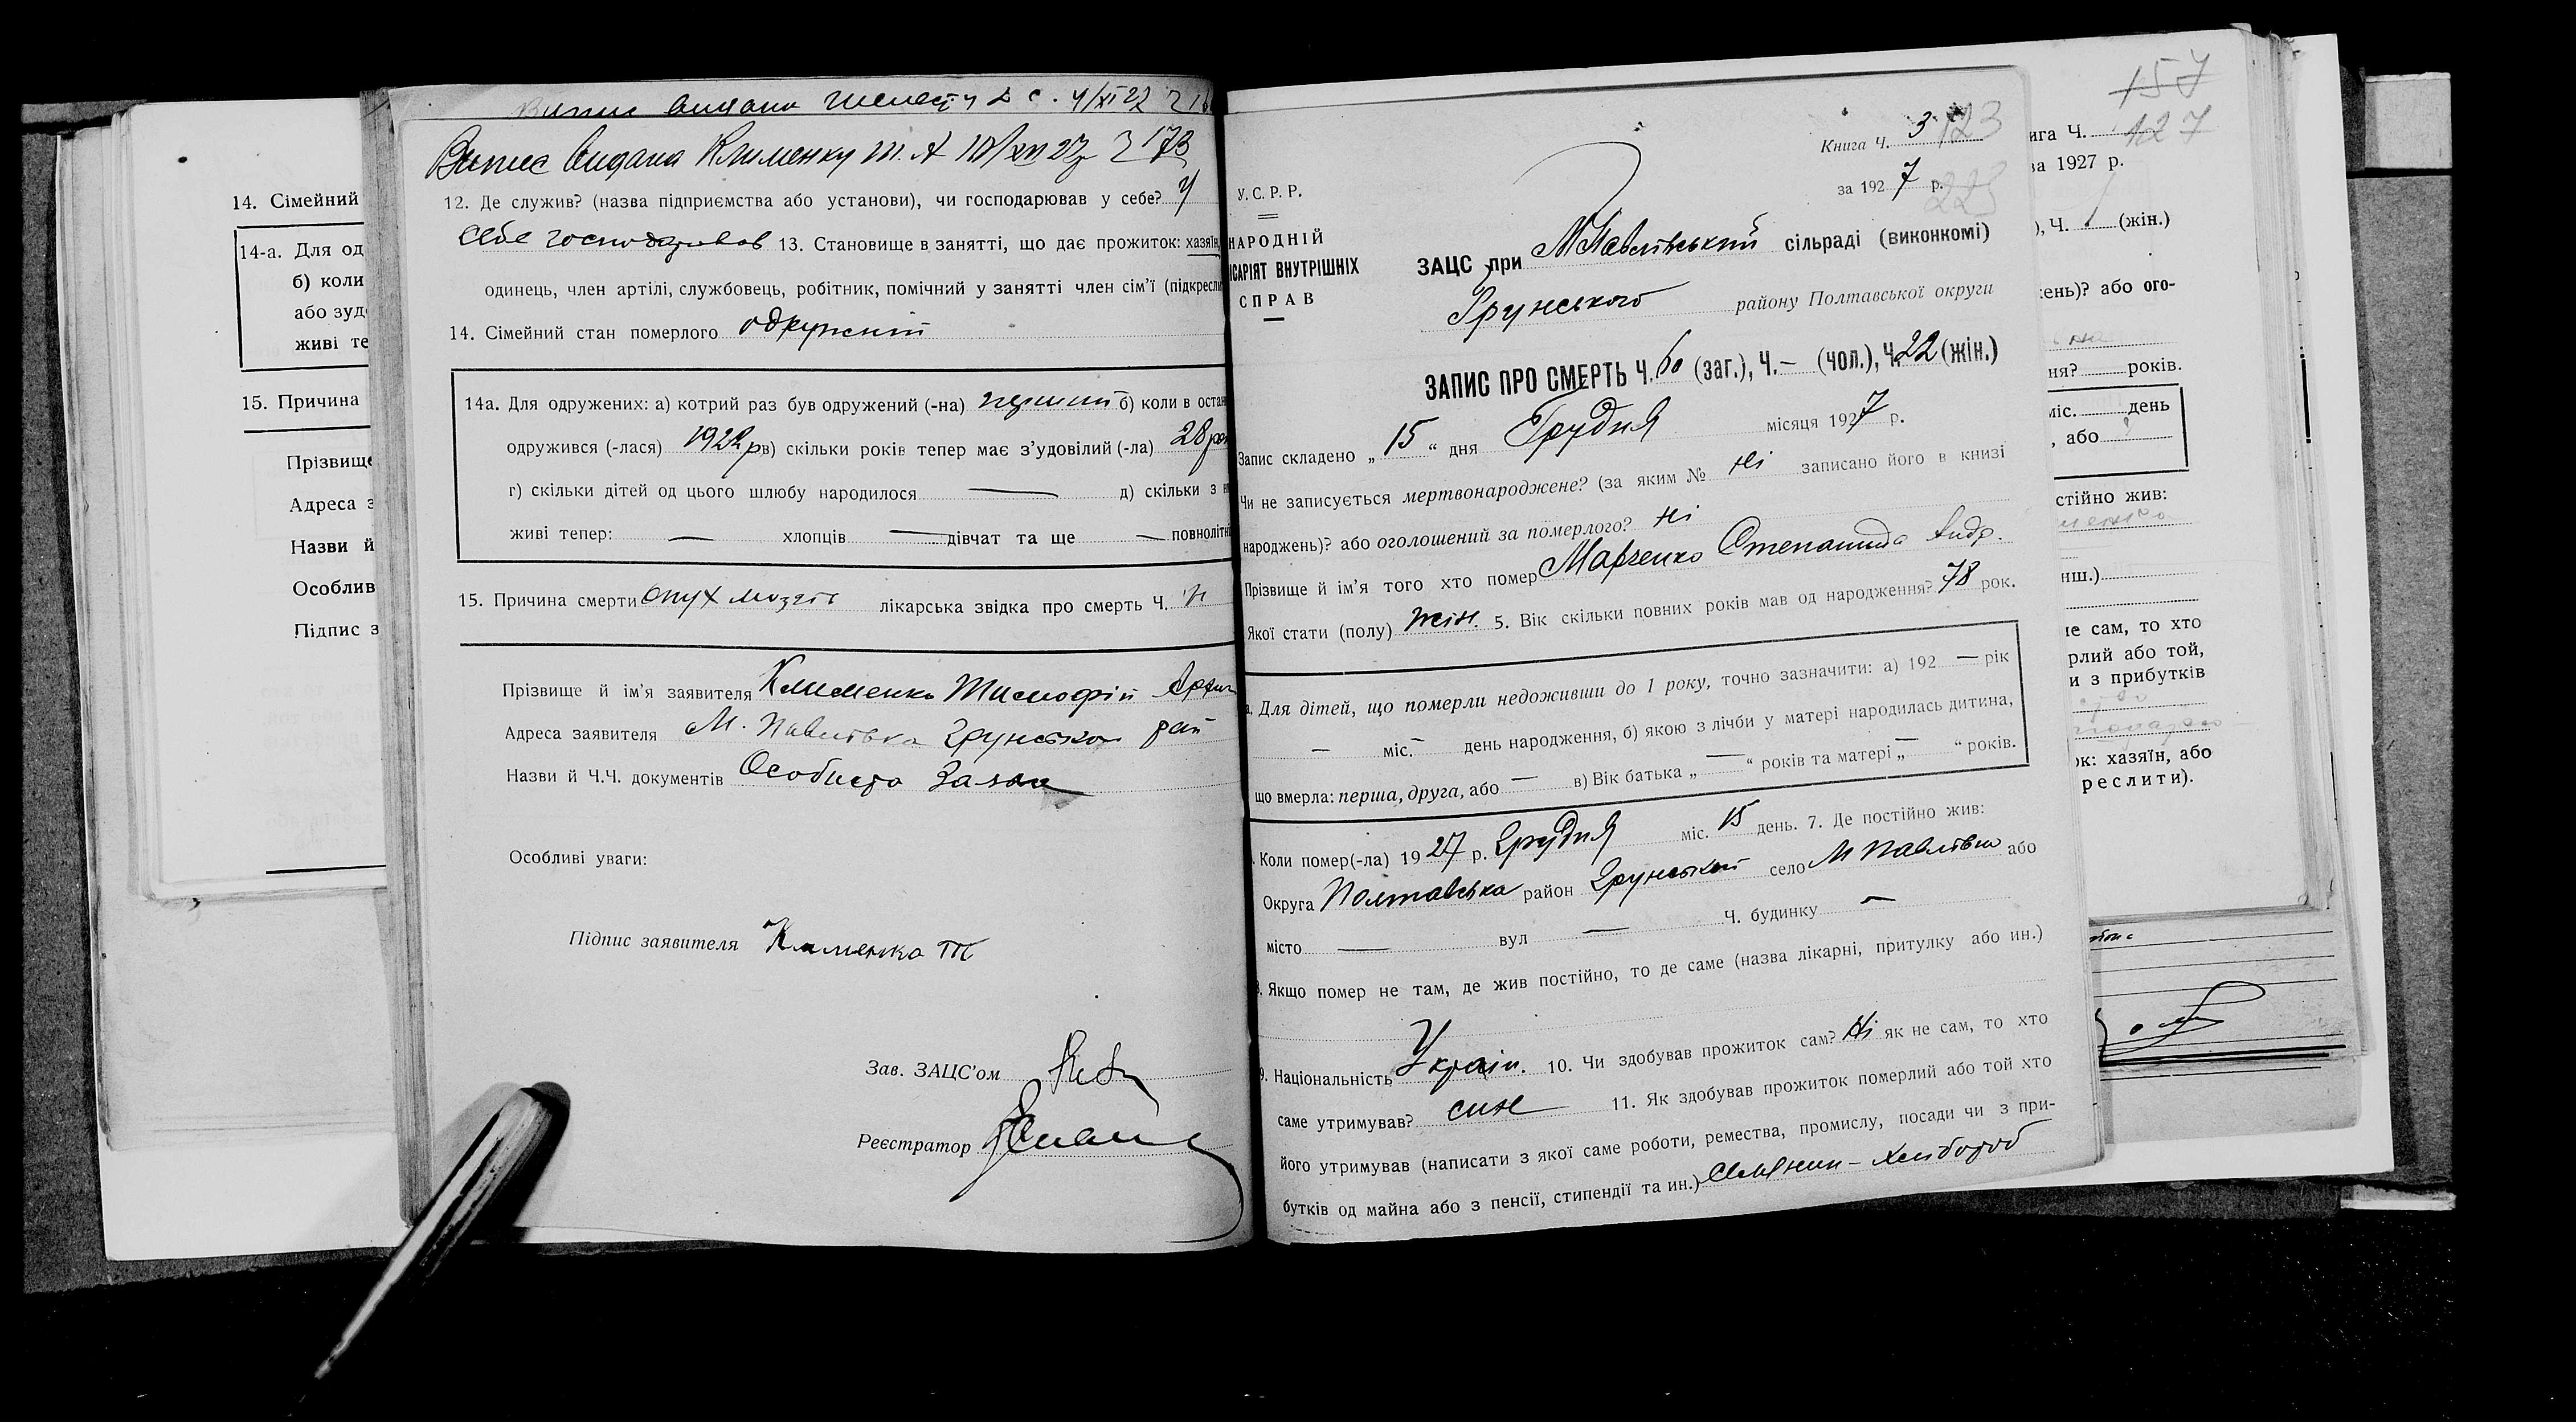 14. Сімейний
14-а. Для од
б) коли
або зуд
живі те
15. Причина
Прізвище
Адреса з
Назви й
Особлив
Підпис з
Випис видана 4/XI 27
Випис видана Клименку Т. А 173
12. Де служив? (назва підприємства або установи), чи господарював у себе? у
себе господарював 13. Становище в занятті, що дає прожиток: хазяїн,
одинець, член артілі, службовець, робітник, помічний у занятті член сім'ї (підкресли
14. Сімейний стан померлого одружений
14а. Для одружених: а) котрий раз був одружений (-на) перший б) коли в остан
одружився (-лася) 1922 р в) скільки років тепер має з'удовілий (-ла) 28 рок
г) скільки дітей од цього шлюбу народилося — д) скільки з н
живі тепер: — хлопців — дівчат та ще — повнолітні
15. Причина смерти опух лікарська звідка про смерть Ч.
Прізвище й ім'я заявителя Клименко Тимофій
Адреса заявителя М. Павлівка Грунського рай
Назви й Ч.Ч. документів Особиста Заява
Особливі уваги:
Підпис заявителя Клименко Т
Зав. ЗАЦС'ом
Реєстратор
Книга Ч. 3 123
за 1927 р.
223
У.С.Р.Р.
НАРОДНІЙ
ІСАРІЯТ ВНУТРІШНІХ
СПРАВ
ЗАЦС при М Павлівський сільраді (виконкомі)
Грунського району Полтавської округи
ЗАПИС ПРО СМЕРТЬ Ч. 60 (заг.), Ч. — (чол.), Ч. 22 (жін.)
Запис складено „ 15 “ дня Грудня місяця 1927 р.
Чи не записується мертвонароджене? (за яким № Ні записано його в книзі
народжень)? або оголошений за померлого? Ні
Прізвище й ім'я того хто помер Марченко Степанида Андр.
Якої стати (полу) жін. 5. Вік скільки повних років мав од народження? 78 рок.
Для дітей, що померли недоживши до 1 року, точно зазначити: а) 192 — рік
— міс. — день народження, б) якою з лічби у матері народилась дитина,
що вмерла: перша, друга, або — в) Вік батька „ — “ років та матері „ — “ років.
Коли помер(-ла) 1927 р. Грудня міс. 15 день. 7. Де постійно жив:
Округа Полтавська район Грунський село М Павлівка або
місто — вул — Ч. будинку —
8. Якщо помер не там, де жив постійно, то де саме (назва лікарні, притулку або ин.)
9. Національність Україн. 10. Чи здобував прожиток сам? Ні як не сам, то хто
саме утримував? син 11. Як здобував прожиток померлий або той хто
його утримував (написати з якої саме роботи, ремества, промислу, посади чи з при-
бутків од майна або з пенсії, стипендії та ин.) Селянин - хлібороб
157
ига Ч. 127
за 1927 р.
), Ч. (жін.)
ень)? або ого-
ня? років.
міс. день
, або
стійно жив:
нш.)
не сам, то хто
рлий або той,
и з прибутків
ок: хазяїн, або
реслити).